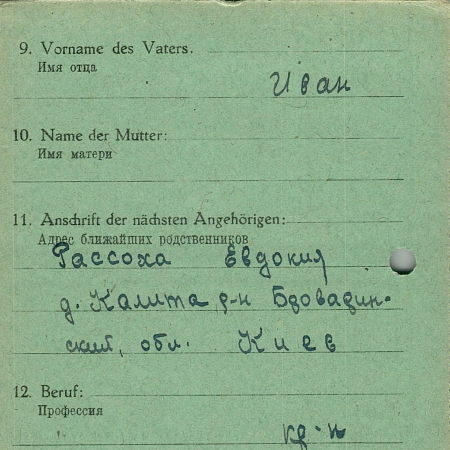 9. Vorname des Vaters.
Имя отца
Иван
10. Name der Mutter:
Имя матери
11. Anschrift der nächsten Angehörigen:
Адрес ближайших родственников
Рассоха Евдокия
д. Калита р-н Бровадин-
ский, обл. Киев
12. Beruf:
Профессия
кр-н